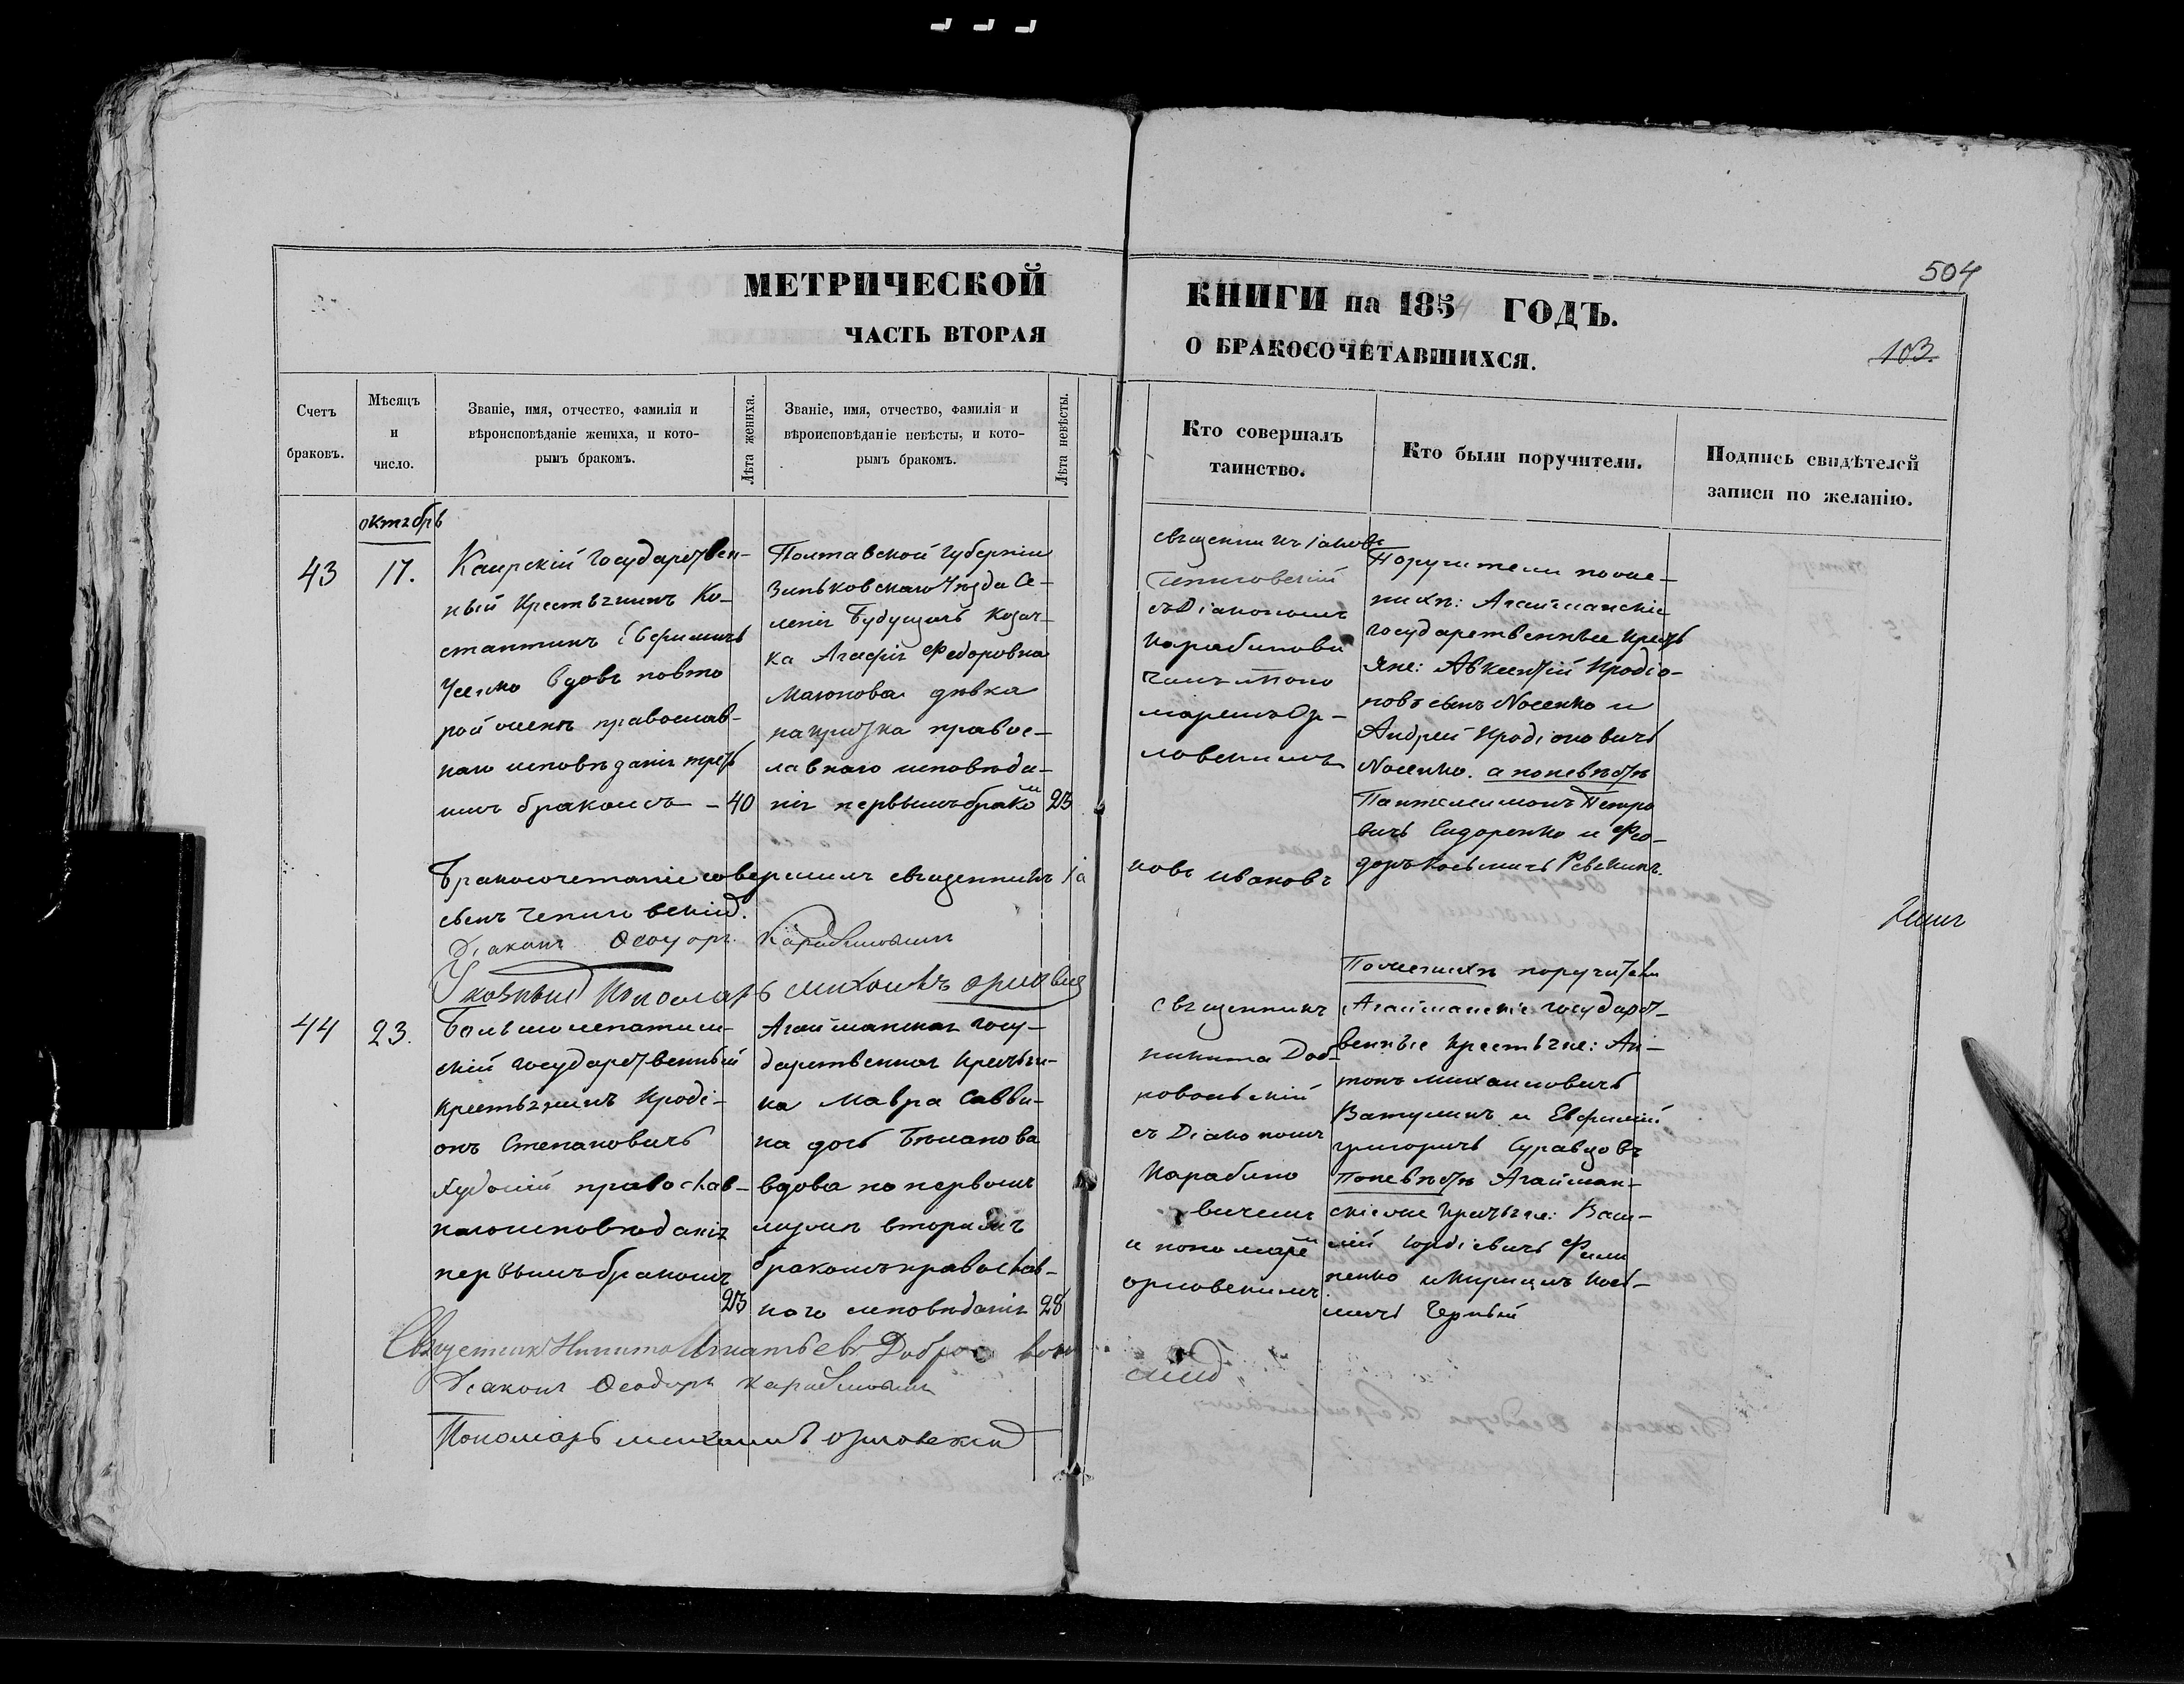 504
МЕТРИЧЕСКОЙ КНИГИ на 1854 ГОДЪ.
ЧАСТЬ ВТОРАЯ О БРАКОСОЧЕТАВШИХСЯ.
103
Счетъ
браковъ.
Мѣсяцъ
и
число.
Званіе, имя, отчество, фамилія и
вѣроисповѣданіе жениха, и кото-
рымъ бракомъ.
Лѣта жениха.
Званіе, имя, отчество, фамилія и
вѣроисповѣданіе невѣсты, и кото-
рымъ бракомъ.
Лѣта невѣсты.
Кто совершалъ
таинство.
Кто были поручители.
Подпись свидѣтелей
записи по желанію.
октябрь
43
17.
Каирскій государствен-
ный крестьянинъ Ко-
стантинъ Евфимичъ
вдовъ повто
православ-
наго исповѣданія треть
имъ бракомъ - 40
Полтавской губерніи
Зиньковскаго уѣзда Се-
ленія Будущахъ Козач-
ка Агафія Федоровна
дѣвка
правос-
лавнаго исповѣда-
нія первымъ бракомъ 23
священникъ Іаковъ
съ Діакономъ
Карабинови
чемъ и поно
маремъ Ор-
ловскимъ
Поручители по же-
нихѣ: Агайманскіе
государственные кресть
яне: Авксентій Иродіо-
новъ сынъ Носенко и
Андрей Иродіоновичъ
Носенко. а по невѣстѣ
Пантелимонъ Петро
вичъ Сидоренко и Фео-
доръ Косьмичъ
Бракосочетаніе совершилъ священникъ Іа
ковъ Ивановъ
сынъ
Діаконъ Ѳеодоръ Карабиновичъ
Указный Пономарь Михаилъ Орловскій
44
23.
государственный
крестьянинъ Іроді-
онъ Степановичъ
православ-
наго исповѣданія
первымъ бракомъ
23
Агайманская госу-
дарственная крестьян-
ка Мавра Савви-
на дочь
вдова по первомъ
мужѣ вторымъ
бракомъ православ-
наго исповѣданія 28
священникъ
Никита Доб-
ровольскій
съ Діакономъ
Карабино
вичемъ
и пономаремъ
орловскимъ
По женихѣ поручители
Агайманскіе государст-
венные крестьяне: Ан-
тонъ Михаиловичъ
Ватулинъ и Евфимій
григоричъ Суравцовъ
По невѣстѣ Агайман-
скіе же крестьяне: Васи-
лій Филип
пенко и Кирилъ Кось-
мичъ Черный
Священникъ Никита Игнатьевъ Доброволь
скій
Діаконъ Ѳеодоръ Карабиновичъ
Пономарь Михаилъ Орловскій